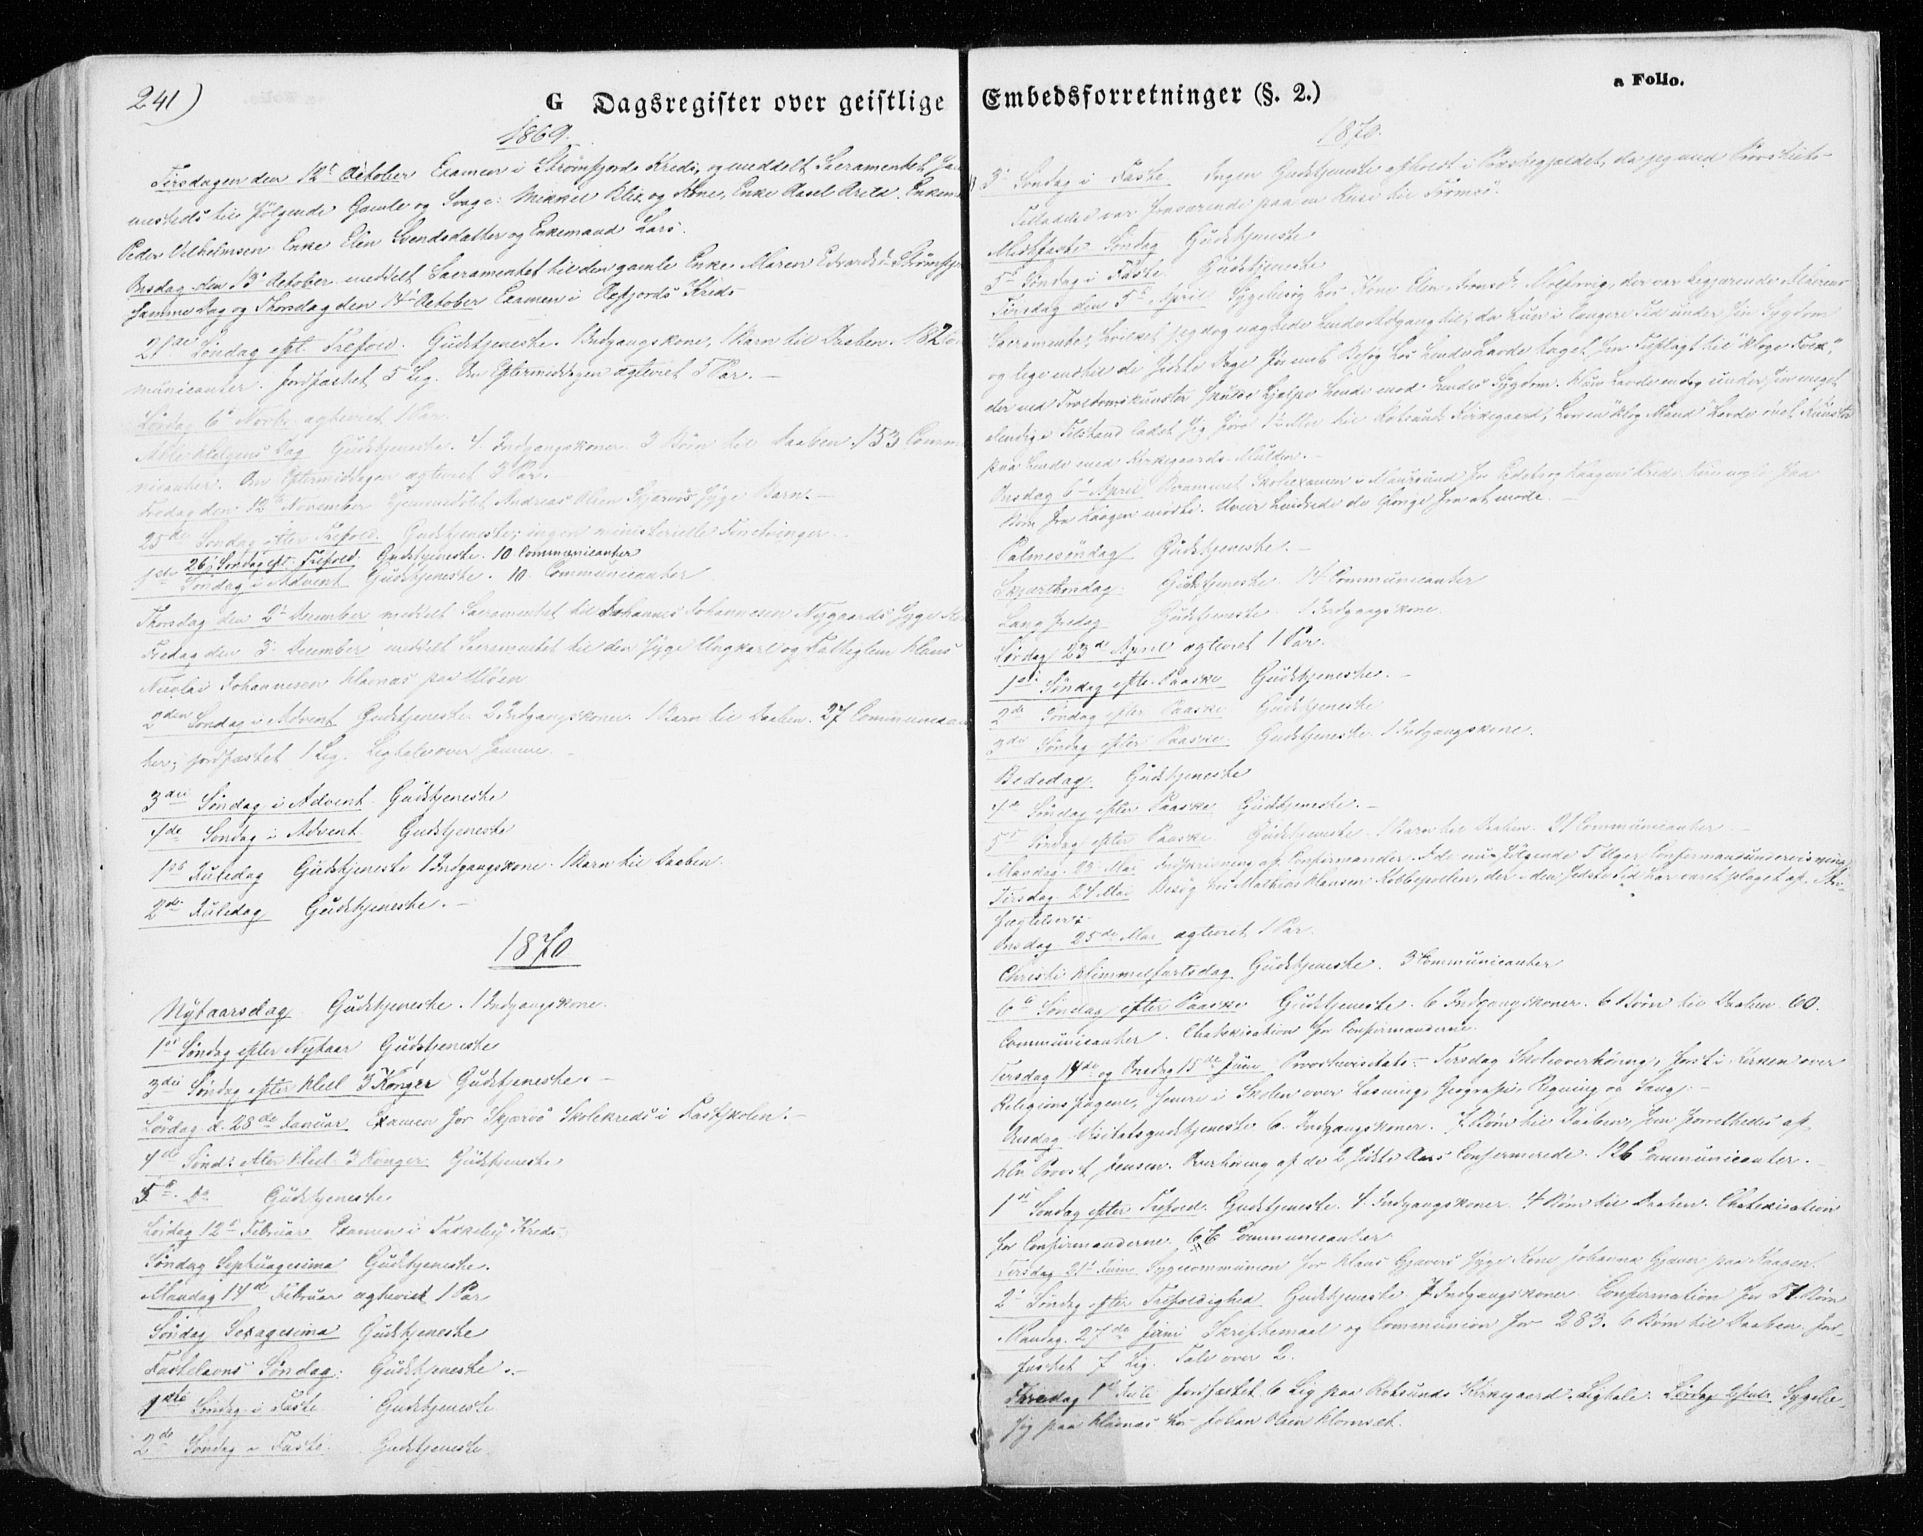 241)
G Dagsregister over geistlige
1869.
Tirsdagen den 12te October Examen i Strømfjords Kreds, og meddelt Sacramentet
til følgende Gamle og Svage: Mikkel Blix og Kone, Enke
Peder Vilhelmsen Enke Elen Svendsdatter og Enkemand Lars.
Onsdag den 13de October meddelt Sacramentet til den gamle Enke Maren Edvardsd.
samme Dag og Thorsdag den 14de October Examen i Oxfjords Kreds
21de Søndag eft. Trefold. Gudstjeneste. 1 Indgangskone, 1 Barn til Daaben. 182
municanter. Jordfæstet 5 Lig. Om Eftermiddagen egteviet 5 Par.-
Lørdag 6te Novbr. egteviet 1 Par.
Allehelgens Dag Gudstjeneste. 4 Indgangskoner. 3 Børn til Daaben. 153 Comm
nicanter. Om Eftermiddagen egteviet 3 Par.
Fredag den 12te November hjemmedøbt Andreas Olsen syge Barn.-
25de Søndag efter Trefold. Gudstjeneste; ingen ministerielle Forretninger.-
26 Søndag eft. Trefold. Gudstjeneste. 10 Communicanter
1ste Søndag i Advent Gudstjeneste. 10 Communicanter
Thorsdag den 2den December meddelt Sacramentet til Johannes Johannesen Nygaards syge
Fredag den 3. December meddelt Sacramentet til den syge Ungkarl og Fattiglem Hans
Nicolai Johannesen
2den Søndag i Advent Gudstjeneste. 2 Indgangskoner. 1 Barn til Daaben. 27 Communican
ter; jordfæstet 1 Lig. Ligtale over samme.-
3die Søndag i Advent Gudstjeneste
4de Søndag i Advent Gudstjeneste
1ste Juledag Gudstjeneste 1 Indgangskone. 1 Barn til Daaben.
2den Juledag Gudstjeneste.-
1870
Nytaarsdag Gudstjeneste. 1 Indgangskone.
1ste Søndag efter Nytaar Gudstjeneste
3die Søndag efter Hell. 3 Konger Gudstjeneste.-
Lørdag d. 28de Januar Examen for Skjervø Skolekreds i Fastskolen.-
4de Sønd: efter Hell. 3 Konger. Gudstjeneste
5te Do Gudstjeneste
Lørdag 12te Februar Examen i Kreds
Søndag Septuagesima Gudstjeneste.
Mandag 14de Februar egteviet 1 Par
Søndag Sexagesima Gudstjeneste
Fastelavns Søndag. Gudstjeneste.-
1ste Søndag i Faste Gudstjeneste
2de Søndag i Faste. Gudstjeneste.
Embedsforretninger (§. 2.)
a Folio.
1870.
3de Søndag i Faste Ingen Gudstjeneste afholdt i Præstegjeldet, da jeg med Provstiets
Tilladelse var fraværende paa en Reise til Tromsø.
Midfaste Søndag Gudstjeneste
5te Søndag i Faste Gudstjeneste
Tirsdag den 5te April Sygebesøg hos Kone Elen der var begjærende Alterens
Sacramente, hvilket jeg dog nægtede hende Adgang til, da hun i længere Tid under sin Sygdom
og lige indtil de sidste Dage før mit Besøg hos hende havde taget sin Tilflugt til "kloge Folk",
der ved Troldomskunster skulde hjælpe hende mod hendes Sygdom. Hun havde endog under sin meget
elendige Tilstand ladet sig føre til Rotsunds Kirkegaard, hvor en "klog Mand" havde øvet Kunster
paa hende med Kirkegaards-Mulden.-
Onsdag 6te April Skoleexamen i Maursund for og Kaagens Kreds. Kun nogle faa
Børn fra Kaagen mødte. Uveir hindrede de Øvrige fra at møde.-
Palmesøndag Gudstjeneste.-
Skjærthorsdag. Gudstjeneste 14 Communicanter
Langfredag Gudstjeneste. 1 Indgangskone.
Lørdag 23de April egteviet 1 Par.
1ste Søndag efter Paaske Gudstjeneste.-
2den Søndag efter Paaske Gudstjeneste
3die Søndag efter Paaske. Gudstjeneste. 1 Indgangskone.
Bededag. Gudstjeneste
4de Søndag efter Paaske Gudstjeneste.-
5te Søndag efter Paaske. Gudstjeneste. 1 Barn til Daaben. 21 Communicanter.-
Mandag 23de Mai Indskrivning af Confirmander. I de nu følgende 5 Uger Confirmandundervisning.
Tirsdag 24 Mai Besøg hos Mathias Hansen Kobbepollen, der i den sidste Tid har været plaget af An-
fægtelser.
Onsdag 25de Mai egteviet 1 Par.
Christi Himmelfartsdag Gudstjeneste. 3 Communicanter
6te Søndag efter Paaske Gudstjeneste. 6 Indgangskoner. 6 Børn til Daaben. 60.
Communicanter. Chatekisation for Confirmanderne.
Tirsdag 14de og Onsdag 15de Juni Provstevisitats.- Tirsdag Skoleoverhøring, først i Kirken over
Religionsfagene, senere i Skolen over Læsning, Geografi, Regning og Sang.-
Onsdag Visitatsgudstjeneste. 6. Indgangskoner. 7 Børn til Daaben, som forrettedes af
Hr. Provst Jensen. Overhøring af de 2 sidste Aars Confirmerede. 126 Communicanter.-
1ste Søndag efter Trefold. Gudstjeneste. 4. Indgangskoner. 4 Børn til Daaben. Chatekisation
for Confirmanderne. 66 Communicanter
Tirsdag 21de Juni Sygecommunion for Hans Gjævers syge Kone Johanna Gjæver paa Kaagen.
2de Søndag efter Trefoldighed Gudstjeneste 7 Indgangskoner Confirmation for 51. Børn
Mandag 27de Juni Skriftemaal og Communion for 283. 6 Børn til Daaben. Jord-
fæstet 7 Lig. Tale over 2.
Fredag 1ste Juli Jordfæstet 6 Lig paa Rotsunds Kirkegaard. Ligtale. Lørdag 2den Juli Sygebe-
søg paa hos Johan Olsen